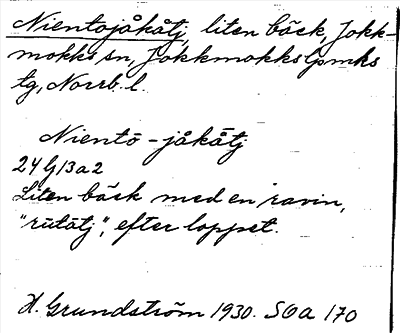 Nientojåkåtj, liten bäck, Jokk-
mokks sn, Jokkmokks lpmks
tg, Norrb. l.
Nientō - jåkåtj
24 G/3a2
Liten bäck med en ravin,
"rūtātj", efter loppet.
H. Grundström 1930. SOA 170